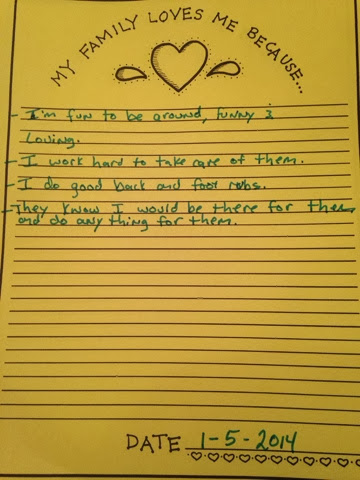 MY FAMILY LOVES ME BECAUSE...
- I'm fun to be around, funny &
Loving.
- I work hard to take care of them.
- I do good back and foot rubs.
- They know I would be there for them
and do any thing for them.
DATE 1-5-2014